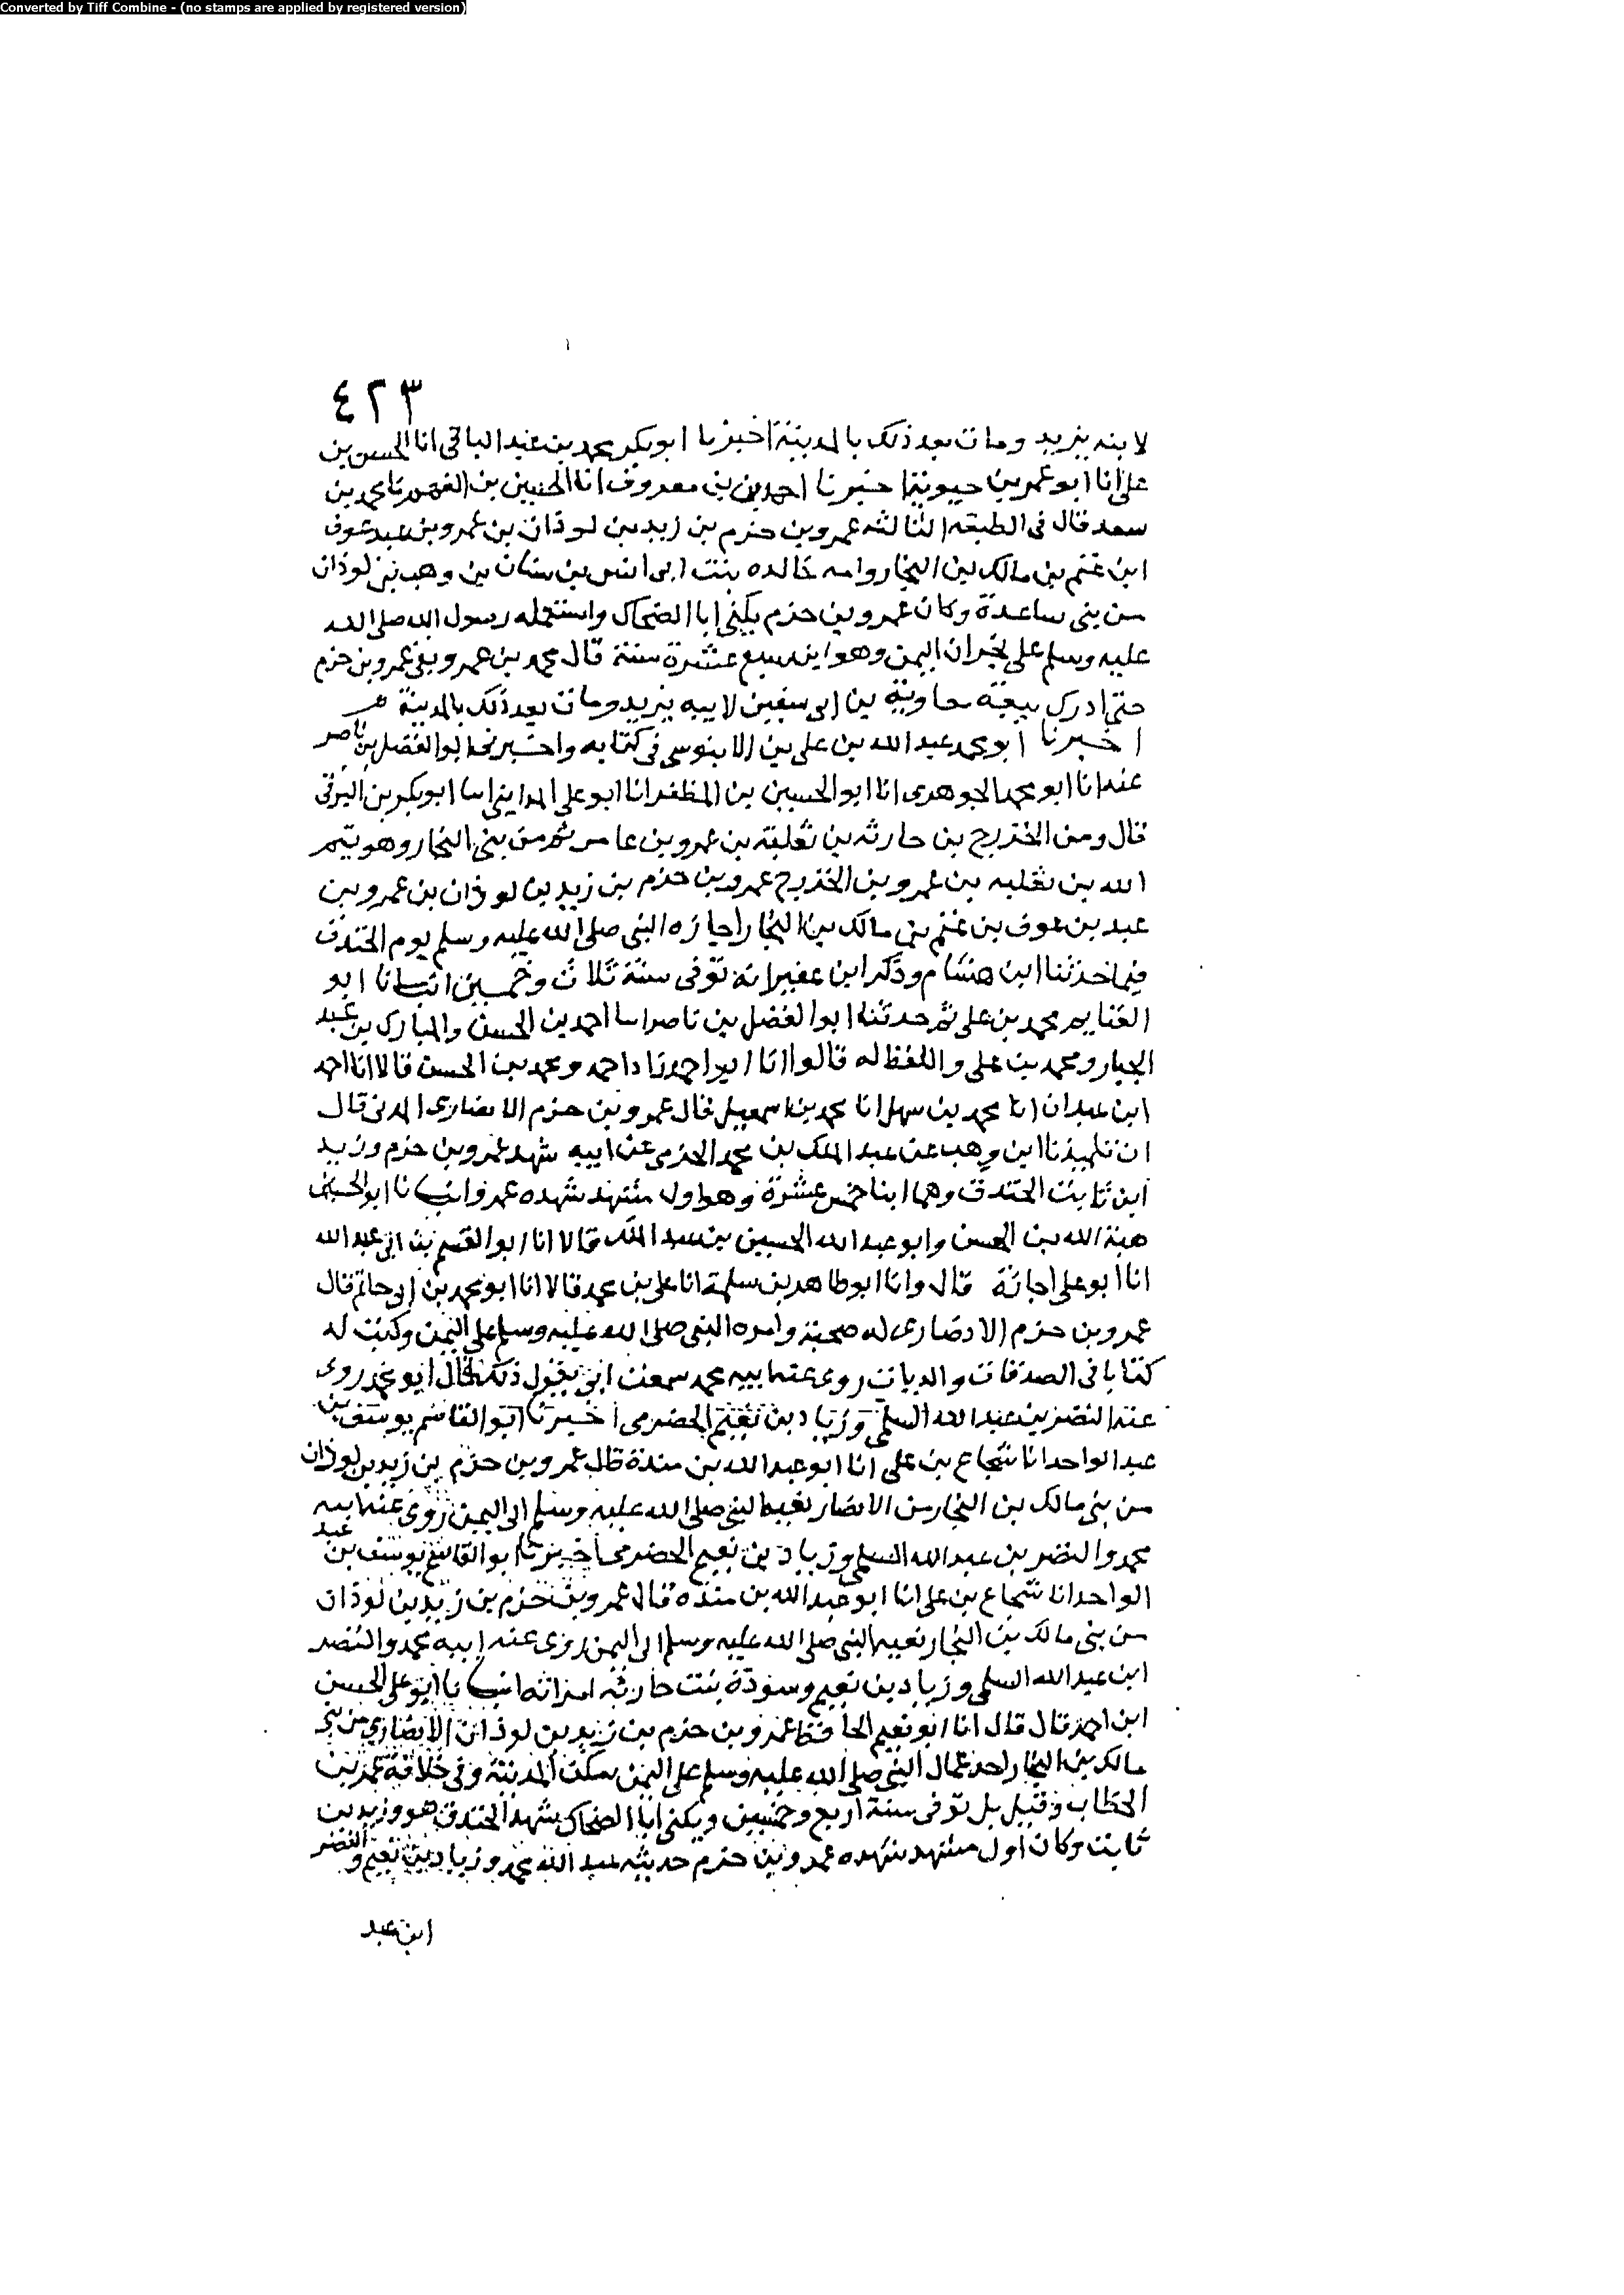 Converted by Tiff Combine - (no stamps are applied by registered version)
٤٢٣
لابنه يزيد ومات بعد ذلك بالمدينة اخبرنا ابو بكر محمد بن عبد الباقى انا الحسن بن
على انا ابو عمر بن حيوية اخبرنا احمد بن معروف انا الحسين بن الفهم نا محمد بن
سعد قال فى الطبقه الثالثه عمرو بن حزم بن زيد بن لوذان بن عمرو بن عبد عوف
ابن غنم بن مالك بن النجار وامه خالده بنت ابى انس بن سنان بن وهب بن لوذان
من بنى ساعدة وكان عمرو بن حزم يكنى ابا الضحاك واستعمله رسول الله صلى الله
عليه وسلم على نجران اليمن وهو ابن سبع عشرة سنة قال محمد بن عمر وبقى عمرو بن حزم
حتى ادرك بيعة معاوية بن ابى سفين لابيه يزيد ومات بعد ذلك بالمدينة
اخبرنا ابو محمد عبد الله بن على بن الابنوسى فى كتابه واخبرنى ابو الفضل بن ناصر
عنه انا ابو محمد الجوهرى انا ابو الحسين بن المظفر انا ابو على المداينى انا ابو بكر بن البرقى
قال ومن الخزرج بن حارثه بن ثعلبة بن عمرو بن عامر ثم من بنى النجار وهو تيم
الله بن ثعلبه بن عمرو بن الخزرج عمرو بن حزم بن زيد بن لوذان بن عمرو بن
عبد بن عوف بن غنم بن مالك بن النجار اجازه النبى صلى الله عليه وسلم يوم الخندق
فيما حدثنا ابن هشام وذكر ابن عفير انه توفى سنة ثلاث وخمسين انبانا ابو
الغنايم محمد بن على ثم حدثنا ابو الفضل بن ناصر انا احمد بن الحسن والمبارك بن عبد
الجبار ومحمد بن على واللفظ له قالوا انا ابو احمد زاد احمد ومحمد بن الحسن قالا انا احمد
ابن عبدان انا محمد بن سهل انا محمد بن اسمعيل قال عمرو بن حزم الانصارى المدنى قال
ابن وهب عن عبد الملك بن محمد الحزمى عن ابيه شهد عمرو بن حزم وزيد
ابن ثابت الخندق وهما ابنا خمس عشرة وهو اول مشهد شهده عمرو انبانا ابو الحسين
هبة الله بن الحسن وابو عبد الله الحسين بن عبد الملك قالا انا ابو القسم بن ابى عبد الله
انا ابو على اجازة قال وانا ابو طاهر بن سلمة انا على بن محمد قالا انا ابو محمد بن ابى حاتم قال
عمرو بن حزم الانصارى له صحبة وامره النبى صلى الله عليه وسلم على اليمن وكتب له
كتابا فى الصدقات والديات روى عنه ابنه محمد سمعت ابى يقول ذلك قال ابو محمد روى
عنه النضر بن عبد الله السلمى وزياد بن نعيم الحضرمى اخبرنا ابو القاسم يوسف بن
عبد الواحد انا شجاع بن على انا ابو عبد الله بن مندة قال عمرو بن حزم بن زيد بن لوذان
من بنى مالك بن النجار من الانصار بعثه النبى صلى الله عليه وسلم الى اليمن روى عنه ابنه
محمد والنضر بن عبد الله السلمى وزياد بن نعيم الحضرمى اخبرنا ابو القاسم يوسف بن عبد
الواحد انا شجاع بن على انا ابو عبد الله بن منده قال عمرو بن حزم بن زيد بن لوذان
من بنى مالك بن النجار بعثه النبى صلى الله عليه وسلم الى اليمن روى عنه ابنه محمد والنضر
ابن عبد الله السلمى وزياد بن نعيم وسودة بنت حارثه امراته انبانا ابو على الحسن
ابن احمد قال قال انا ابو نعيم الحافظ عمرو بن حزم بن زيد بن لوذان الانصارى من بنى
مالك بن النجار احد عمال النبى صلى الله عليه وسلم على اليمن سكن المدينة وفى خلافة عمر بن
الخطاب وقيل بل توفى سنة اربع وخمسين ويكنى ابا الضحاك شهد الخندق هو وزيد بن
ثابت وكان اول مشهد شهده عمرو بن حزم حديثه عند ابنه محمد وزياد بن نعيم والنضر
ابن عبد